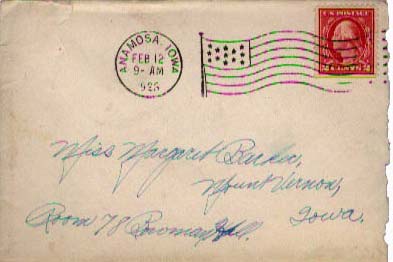 ANAMOSA, IOWA
FEB 12
9-AM
U.S. POSTAGE
2 CENTS 2
Miss Margaret Barker,
Mount Vernon,
Iowa.
Room 78 Bowman Hall.